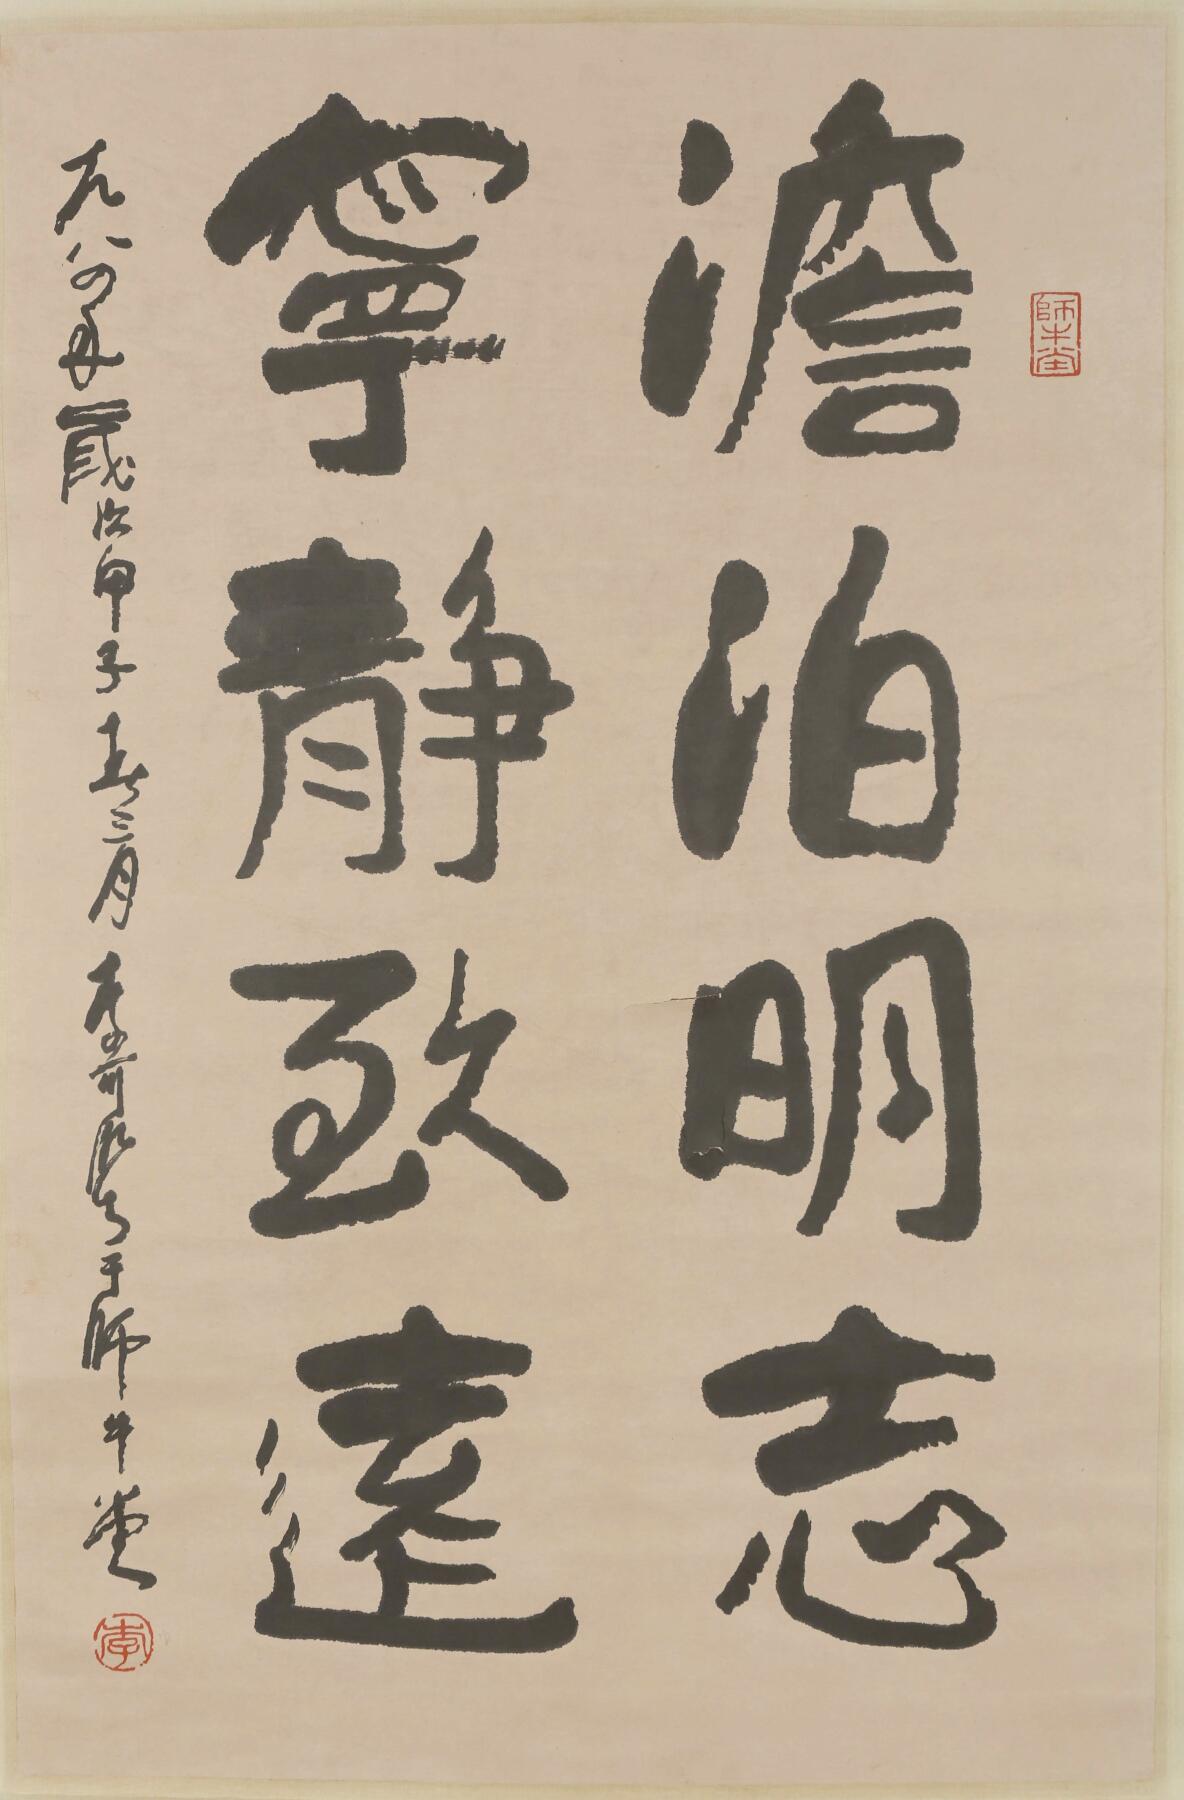 澹泊明志
寧靜致遠
一九八四年歲次甲子春三月李可染書于師牛堂
師牛堂
李